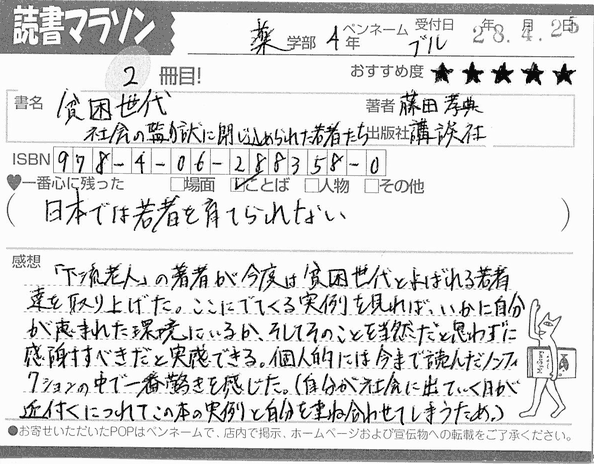 読書マラソン
薬 学部 4 年 ペンネーム ブル 受付日 28年4月25日
2 冊目! おすすめ度 ★★★★★
書名 貧困世代 著者 藤田孝典
社会の監獄に閉じ込められた若者たち 出版社 講談社
ISBN 978-4-06-288358-0
♥一番心に残った □場面 ☑ことば □人物 □その他
(日本では若者を育てられない)
感想
「下流老人」の著者が今度は貧困世代とよばれる若者
達を取り上げた。ここにでてくる実例を見れば、いかに自分
が恵まれた環境にいるか、そしてそのことを当然だと思わずに
感謝すべきだと実感できる。個人的には今まで読んだノンフィ
クションの中で一番驚きを感じた。(自分が社会に出ていく日が
近付くにつれてこの本の実例と自分を重ね合わせてしまうため。)
●お寄せいただいたPOPはペンネームで、店内で掲示、ホームページおよび宣伝物への転載をご了承ください。